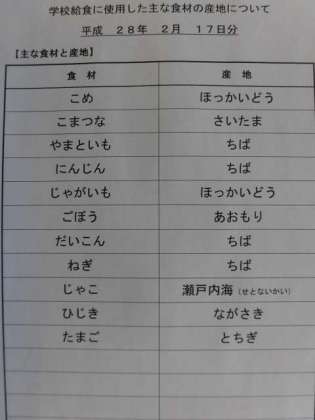 学校給食に使用した主な食材の産地について
平成　28年　2月　17日分
【主な食材と産地】
食　材　産　地
こめ　ほっかいどう
こまつな　さいたま
やまといも　ちば
にんじん　ちば
じゃがいも　ほっかいどう
ごぼう　あおもり
だいこん　ちば
ねぎ　ちば
じゃこ　瀬戸内海（せとないかい）
ひじき　ながさき
たまご　とちぎ